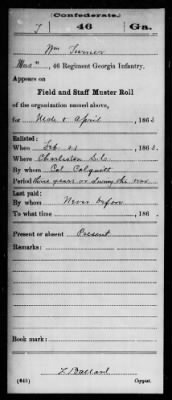 Confederate.
T 46 Ga.
Wm Turner
, 46 Regiment Georgia Infantry.
Appears on
Field and Staff Muster Roll
of the organization named above,
for & April, 1862
Enlisted:
When Feb. 21, 1862.
Where Charleston S.C.
By whom Col Colquitt
Period three years or during the war
Last paid:
By whom Never before
To what time , 186 .
Present or absent Present
Remarks:
Book mark:
(645) Copyist.